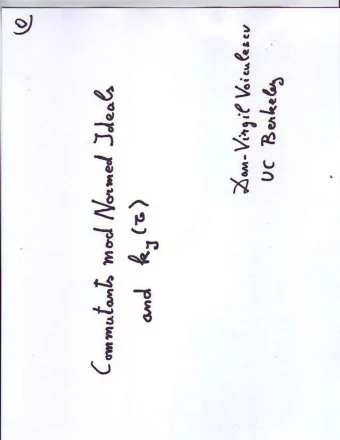 0
Commutants mod Normed Ideals
and k_J(τ)
Dan-Virgil Voiculescu
UC Berkeley